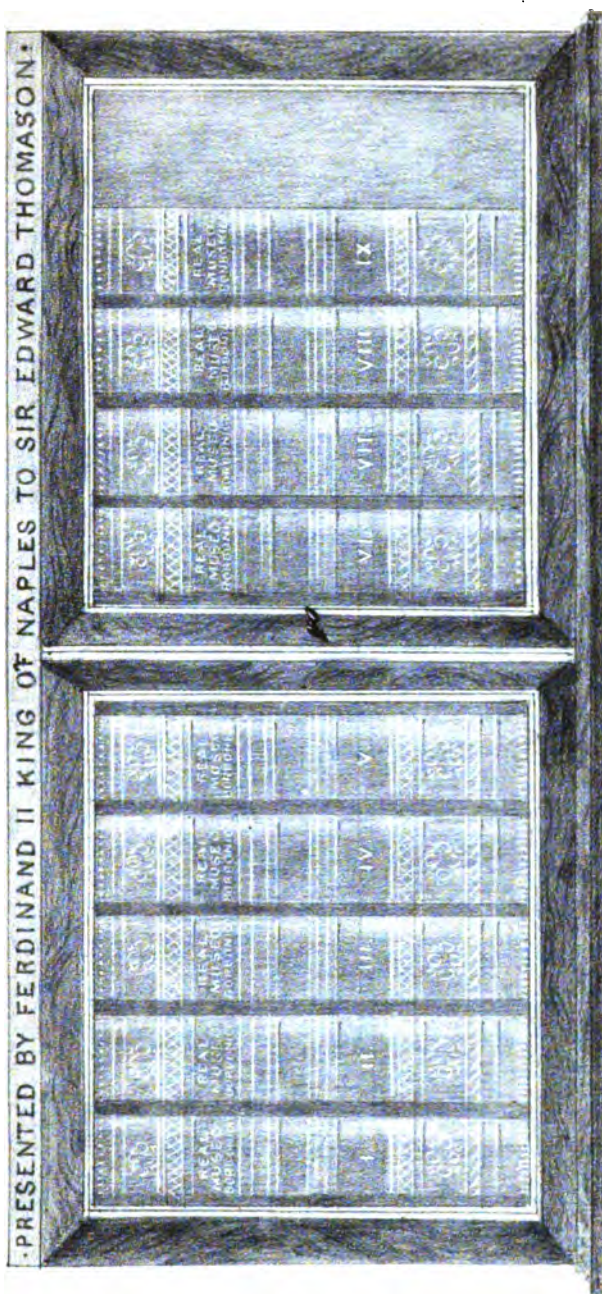 ·PRESENTED BY FERDINAND II KING OF NAPLES TO SIR EDWARD THOMASON·
REAL
MUSEO
I
REAL
MUSE
II
REAL
MUSEO
III
REAL
MUSEO
IV
REAL
MUSEO
BORBONI
V
REAL
MUSEO
BORBONI
VI
REAL
MUSEO
BORBONI
VII
REAL
MUSEO
BORBONI
VIII
REAL
MUSEO
IX